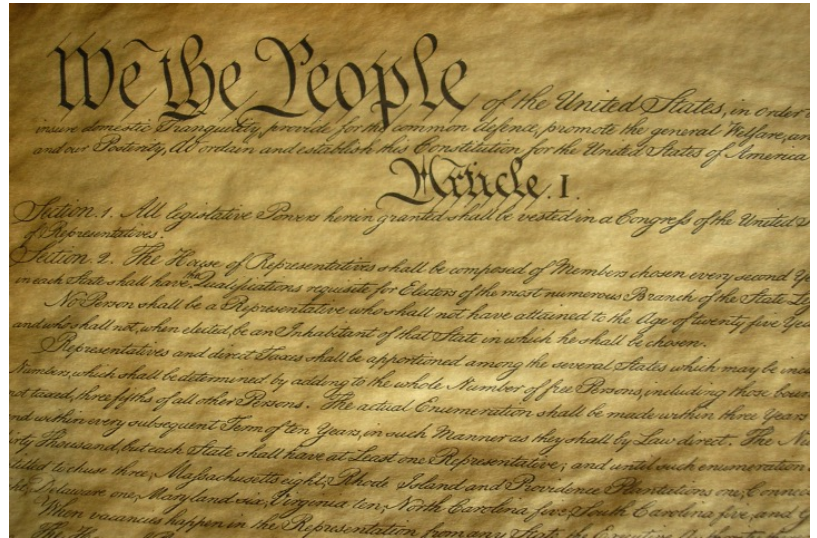 We the People of the United States, in Order
insure domestic Tranquility, provide for the common defence, promote the general Welfare, an
and our Posterity, do ordain and establish this Constitution for the United States of America
Article. I.
Section. 1. All legislative Powers herein granted shall be vested in a Congress of the United S
of Representatives.
Section. 2. The House of Representatives shall be composed of Members chosen every second Ye
in each State shall have the Qualifications requisite for Electors of the most numerous Branch of the State Leg
No Person shall be a Representative who shall not have attained to the Age of twenty five Yea
and who shall not, when elected, be an Inhabitant of that State in which he shall be chosen.
Representatives and direct Taxes shall be apportioned among the several States which may be inclu
Numbers, which shall be determined by adding to the whole Number of free Persons, including those boun
not taxed, three fifths of all other Persons. The actual Enumeration shall be made within three Years
and within every subsequent Term of ten Years, in such Manner as they shall by Law direct. The Nu
irty Thousand, but each State shall have at Least one Representative; and until such enumeration
titled to chuse three, Massachusetts eight, Rhode Island and Providence Plantations one, Connec
Delaware one, Maryland six, Virginia ten, North Carolina five, South Carolina five, and G
When vacancies happen in the Representation from any State, the Executive Authority
The